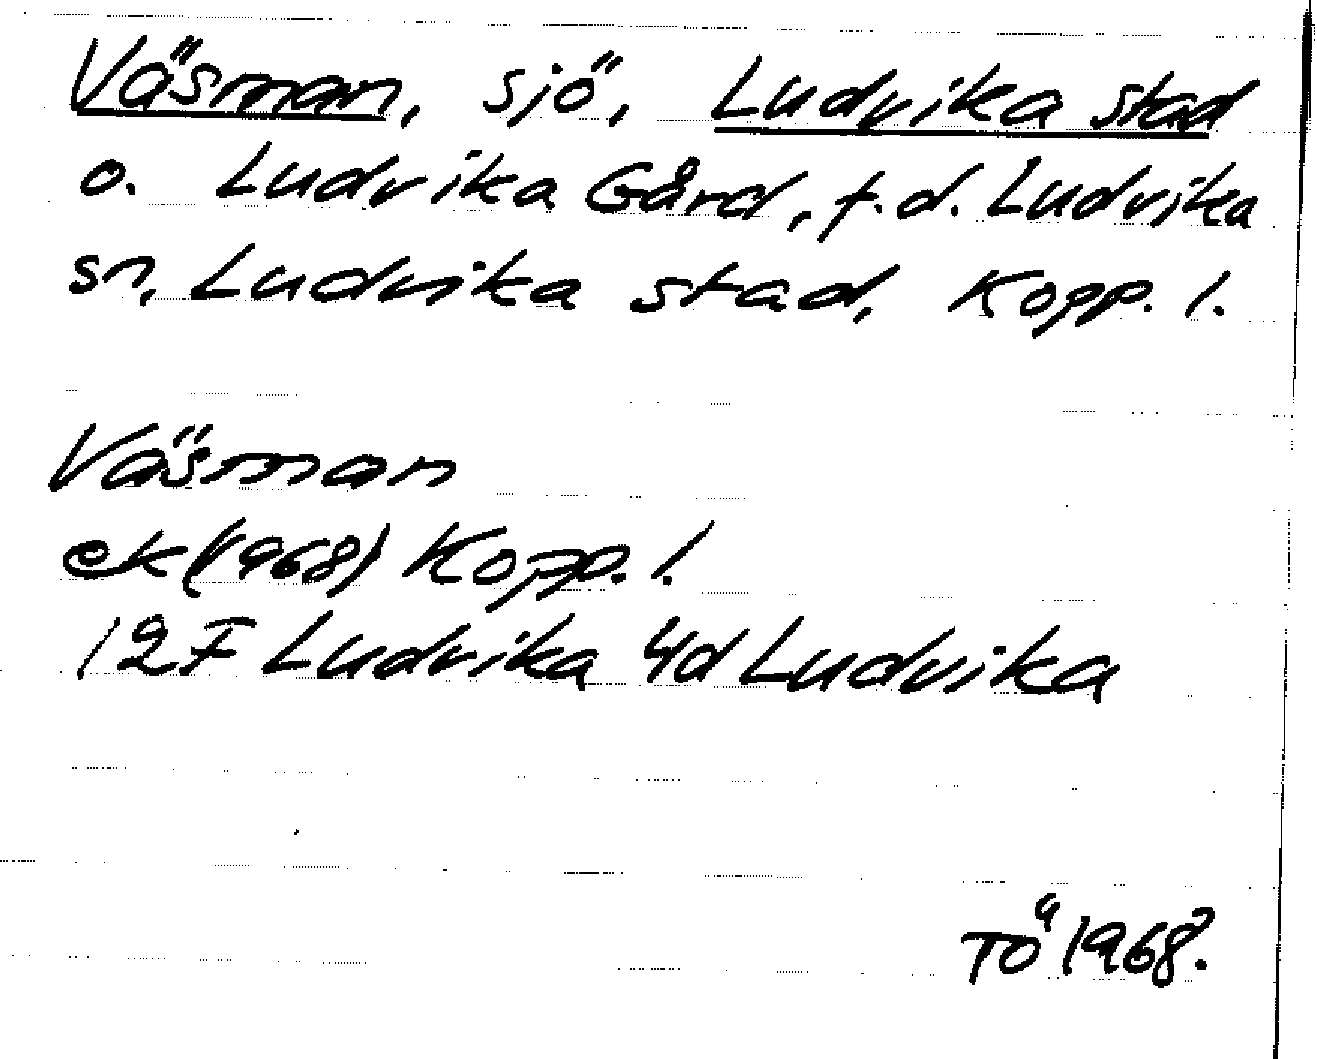 Väsman, sjö, Ludvika stad
o. Ludvika Gård, f.d. Ludvika
sn, Ludvika stad, Kopp. l.
Väsman
ek (1968) Kopp. l.
12 F Ludvika 4d Ludvika
TÖ 1968.